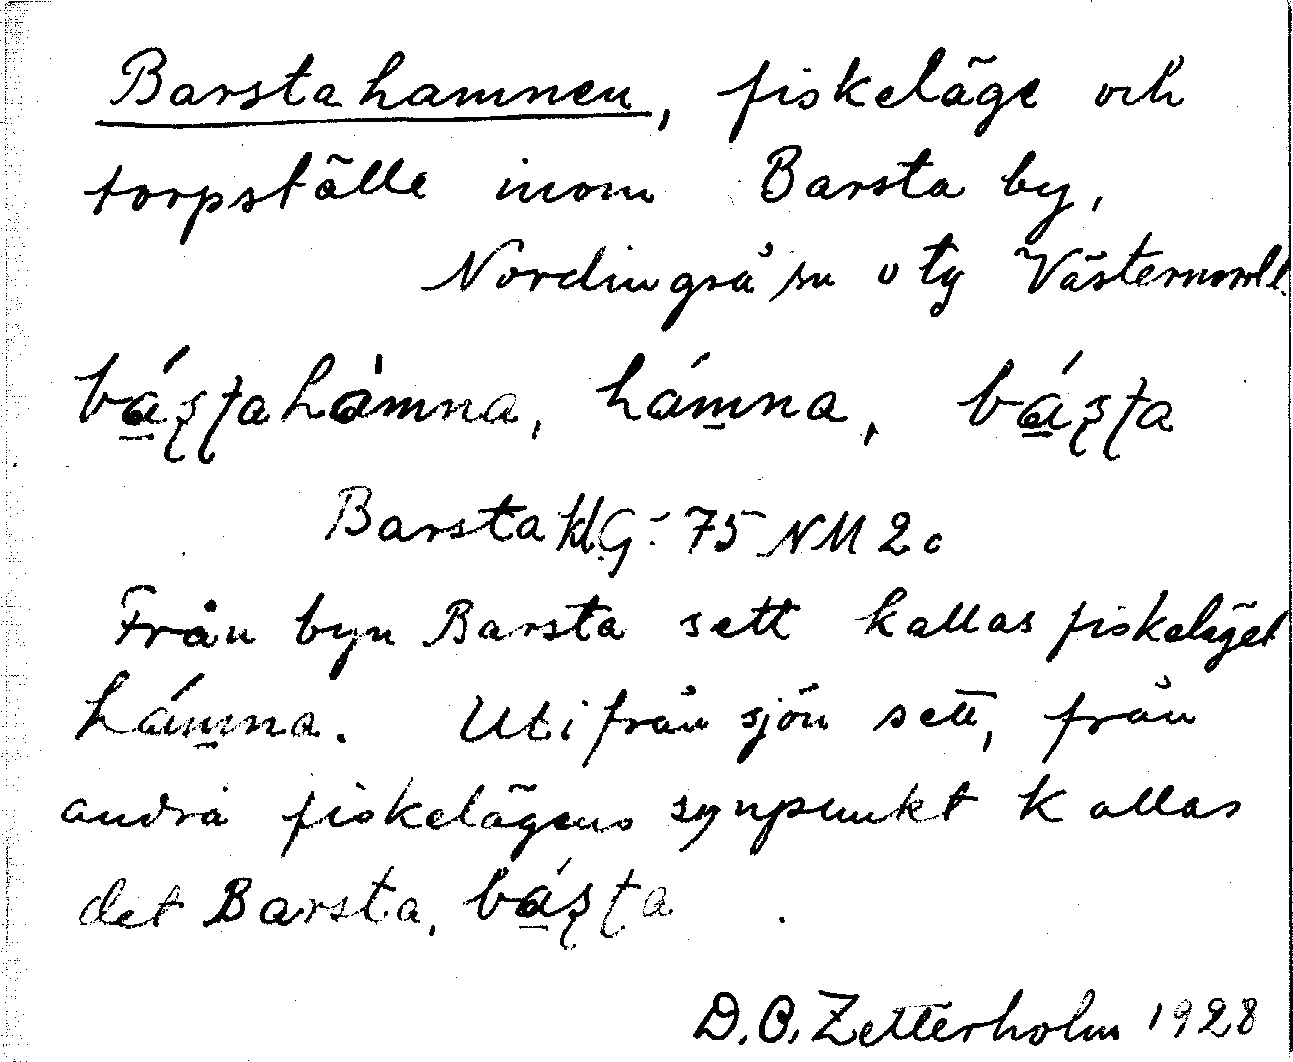 Barstahamnen, fiskeläge och
torpställe inom Barsta by,
Nordingrå sn o tg Västernorrl l.
bá̱ʂʈahàmna, hám̱na, bá̱ʂʈa
Barsta G: 75 NM 2 c
Från byn Barsta sett kallas fiskeläget
hám̱na. Utifrån sjön sett, från
andra fiskelägens synpunkt kallas
det Barsta, bá̱ʂʈa.
D. O. Zetterholm 1928